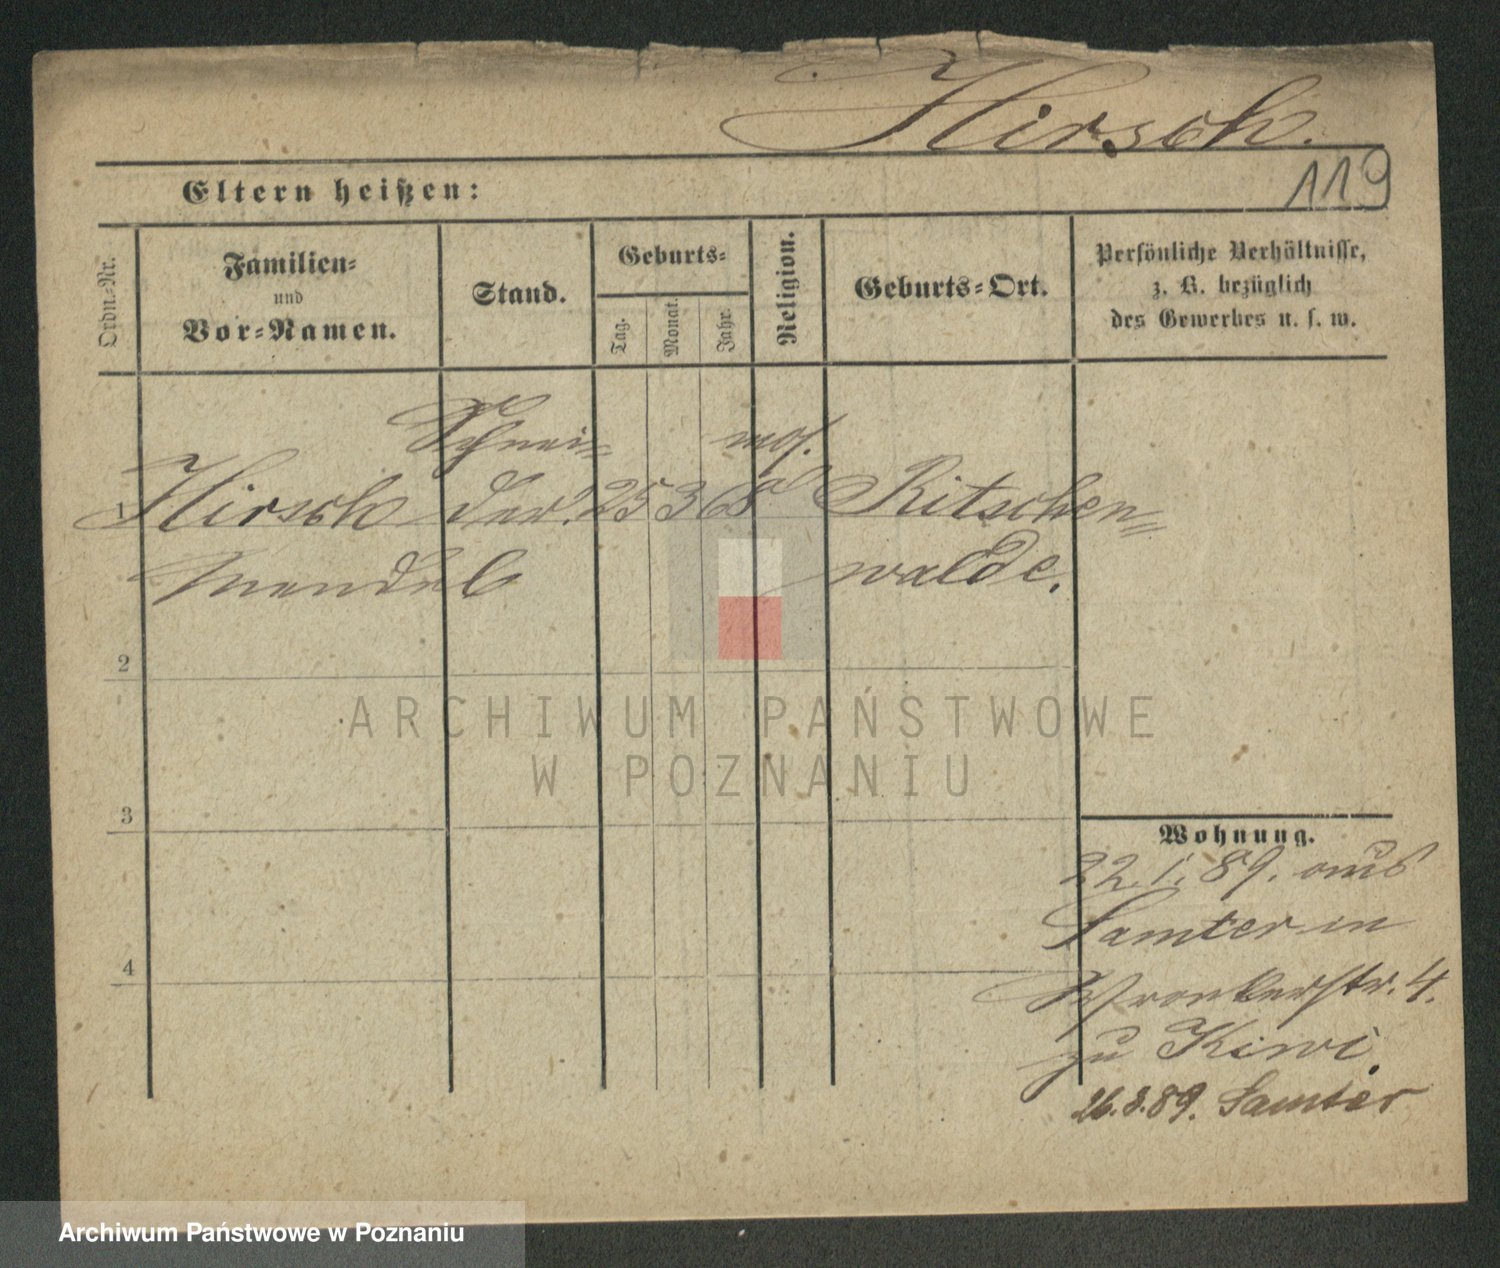 Hirsch.
119
Eltern heißen:
Ordn.-Nr.
Familien-
und
Vor-Namen.
Stand.
Geburts-
Tag.
Monat.
Jahr.
Religion.
Geburts-Ort.
Persönliche Verhältnisse,
z. B. bezüglich
des Gewerbes u. s. w.
Schnei- mos.
1 Hirsch der. 25 3 68 Ritschen-
Mendel walde.
2
3
4
Wohnung.
22. 1. 89. aus
Samter in
Wronkerstr. 4.
zu Kiwi.
26.3.89. Samter
ARCHIWUM PAŃSTWOWE
W POZNANIU
Archiwum Państwowe w Poznaniu